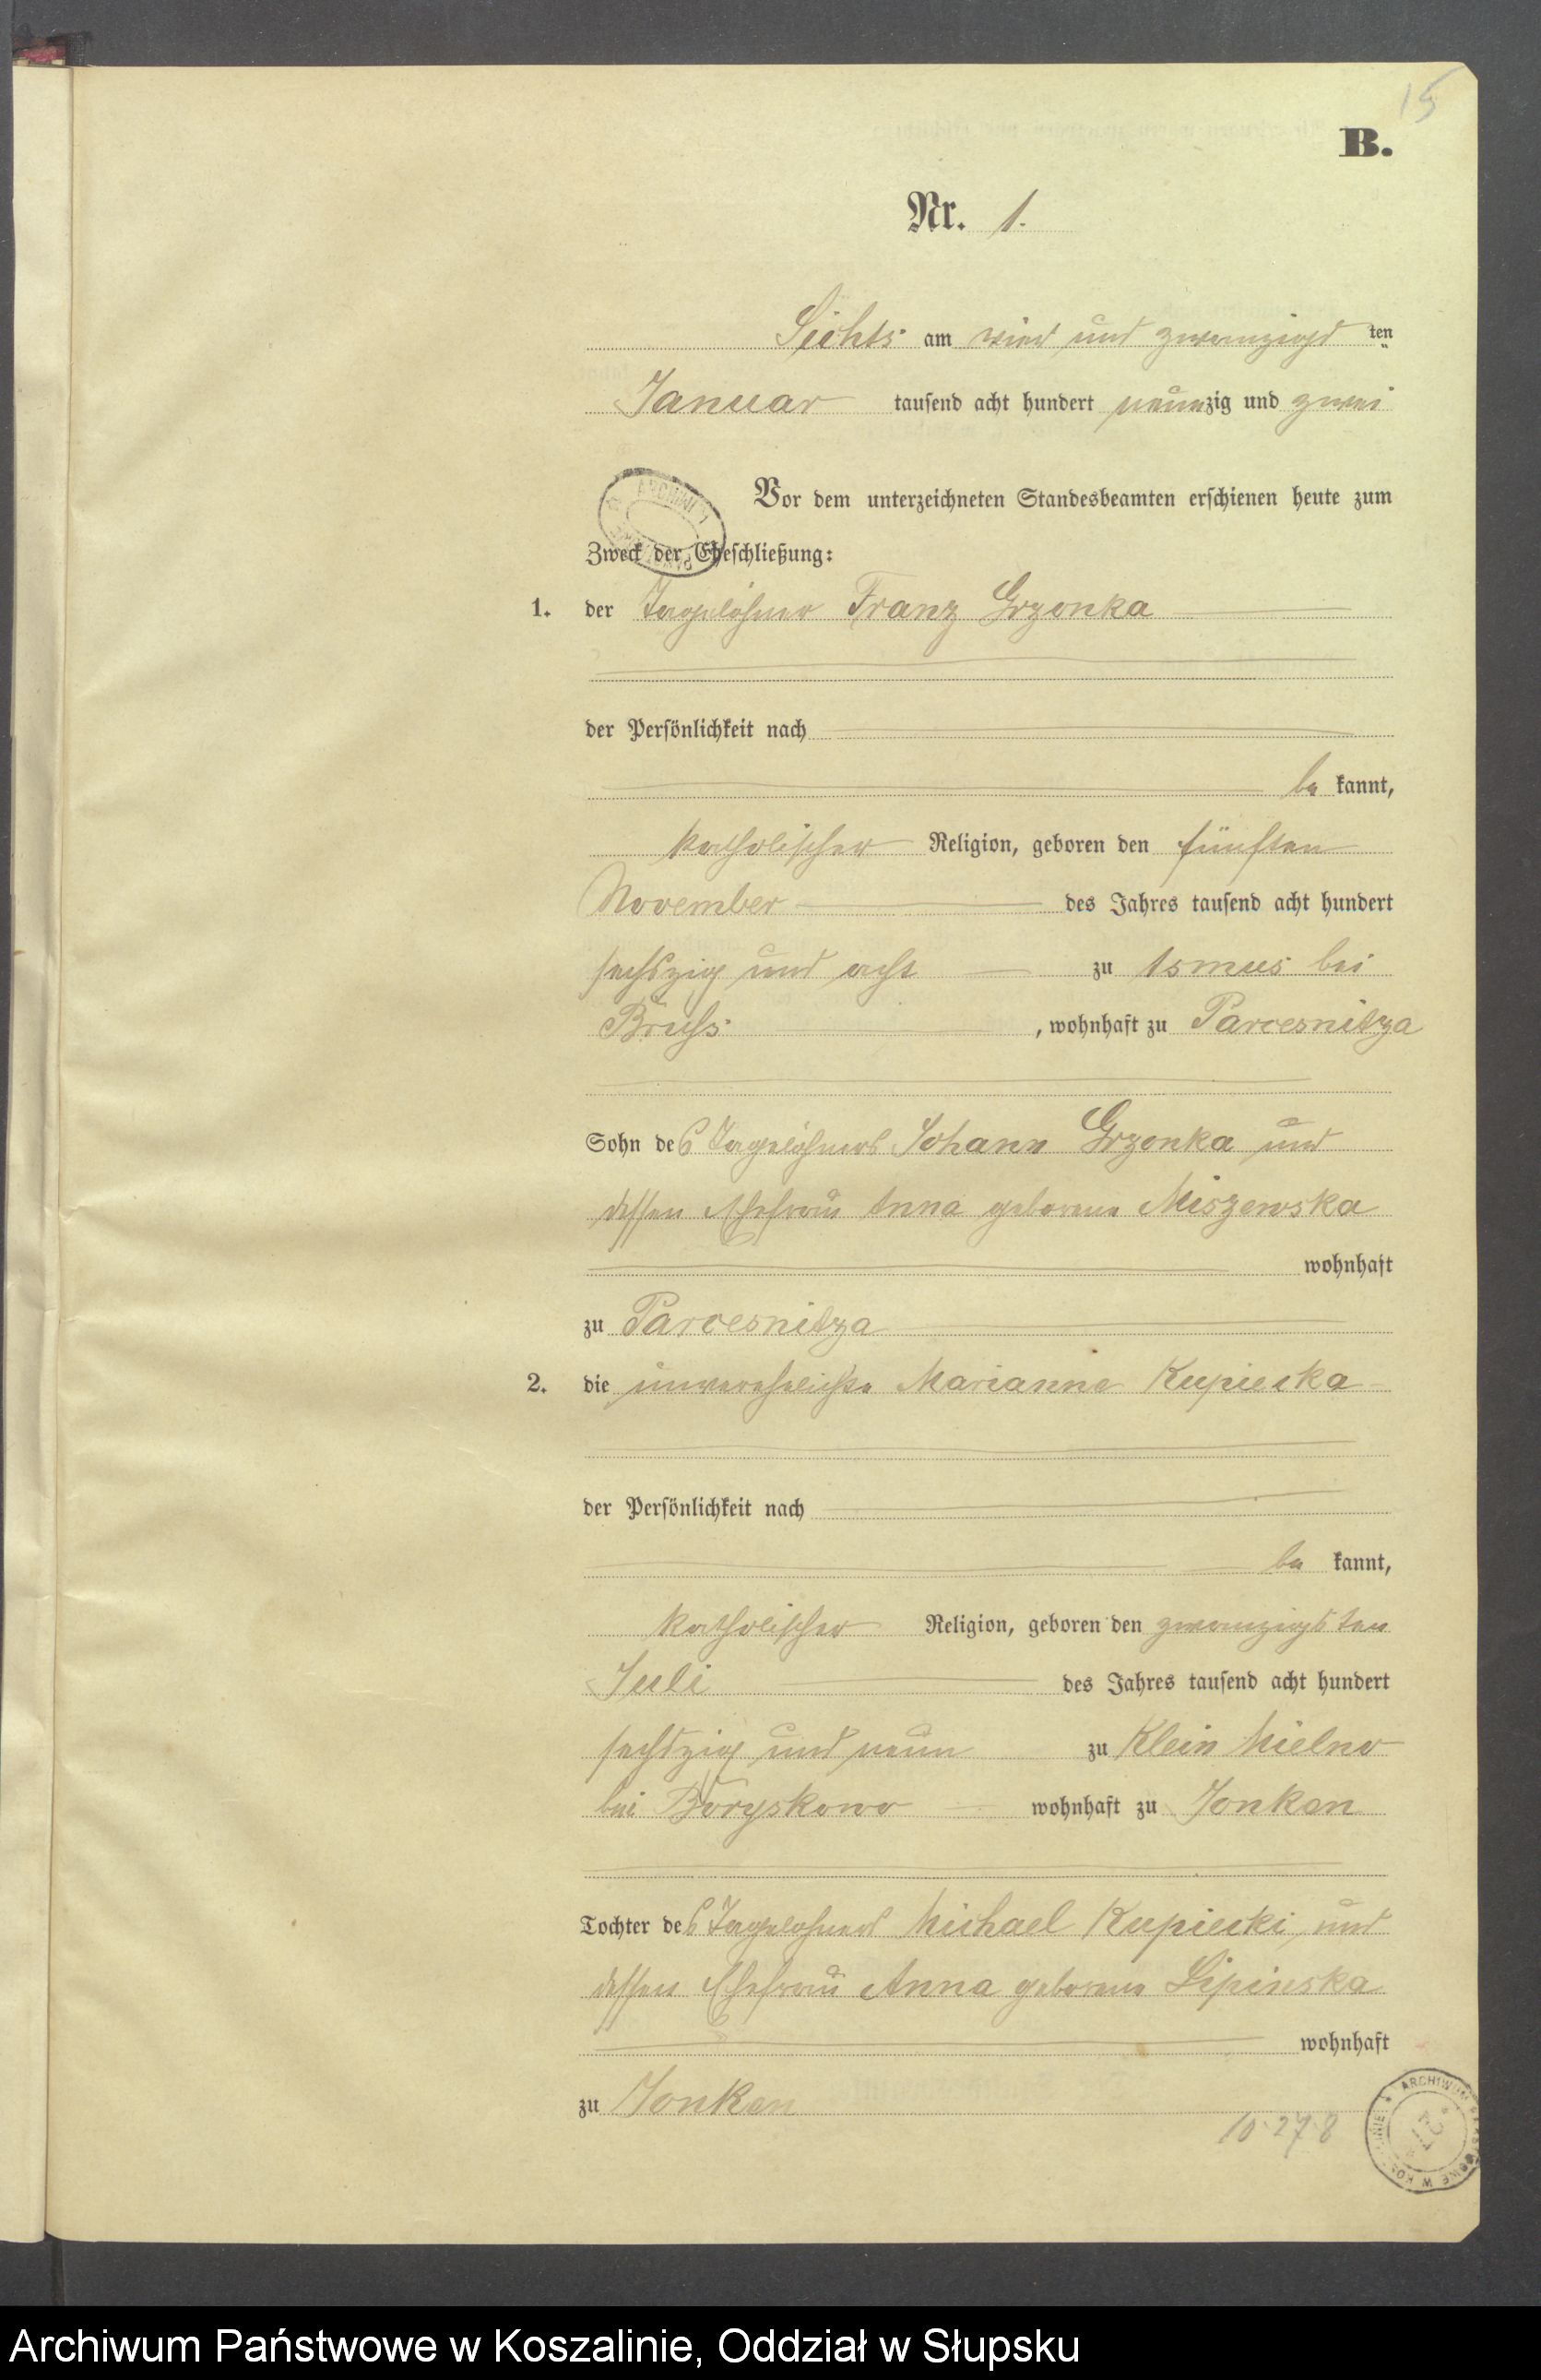 15
B.
Nr. 1.
Lichts am vier und zwanzigs ten
Januar tausend acht hundert neunzig und zwei
Vor dem unterzeichneten Standesbeamten erschienen heute zum
Zweck der Eheschließung:
1. der Tagelöhner Franz Grzonka
der Persönlichkeit nach
be kannt,
katholischer Religion, geboren den fünften
November des Jahres tausend acht hundert
sechszig und acht zu bei
Bruss , wohnhaft zu Parcesnitza
Sohn des Tagelöhners Johann Grzonka und
dessen Ehefrau Anna geborene Miszewska
wohnhaft
zu Parcesnitza
2. die unverehelichte Marianne Kupiecka
der Persönlichkeit nach
be kannt,
katholischer Religion, geboren den zwanzigsten
Juli des Jahres tausend acht hundert
sechszig und neun zu Klein Mielno
bei Boryskowo wohnhaft zu Jonken
Tochter des Tagelöhners Michael Kupiecki und
dessen Ehefrau Anna geborene Lipinska
wohnhaft
zu Jonken
10.27.8
ARCHIWUM
Archiwum Państwowe w Koszalinie, Oddział w Słupsku